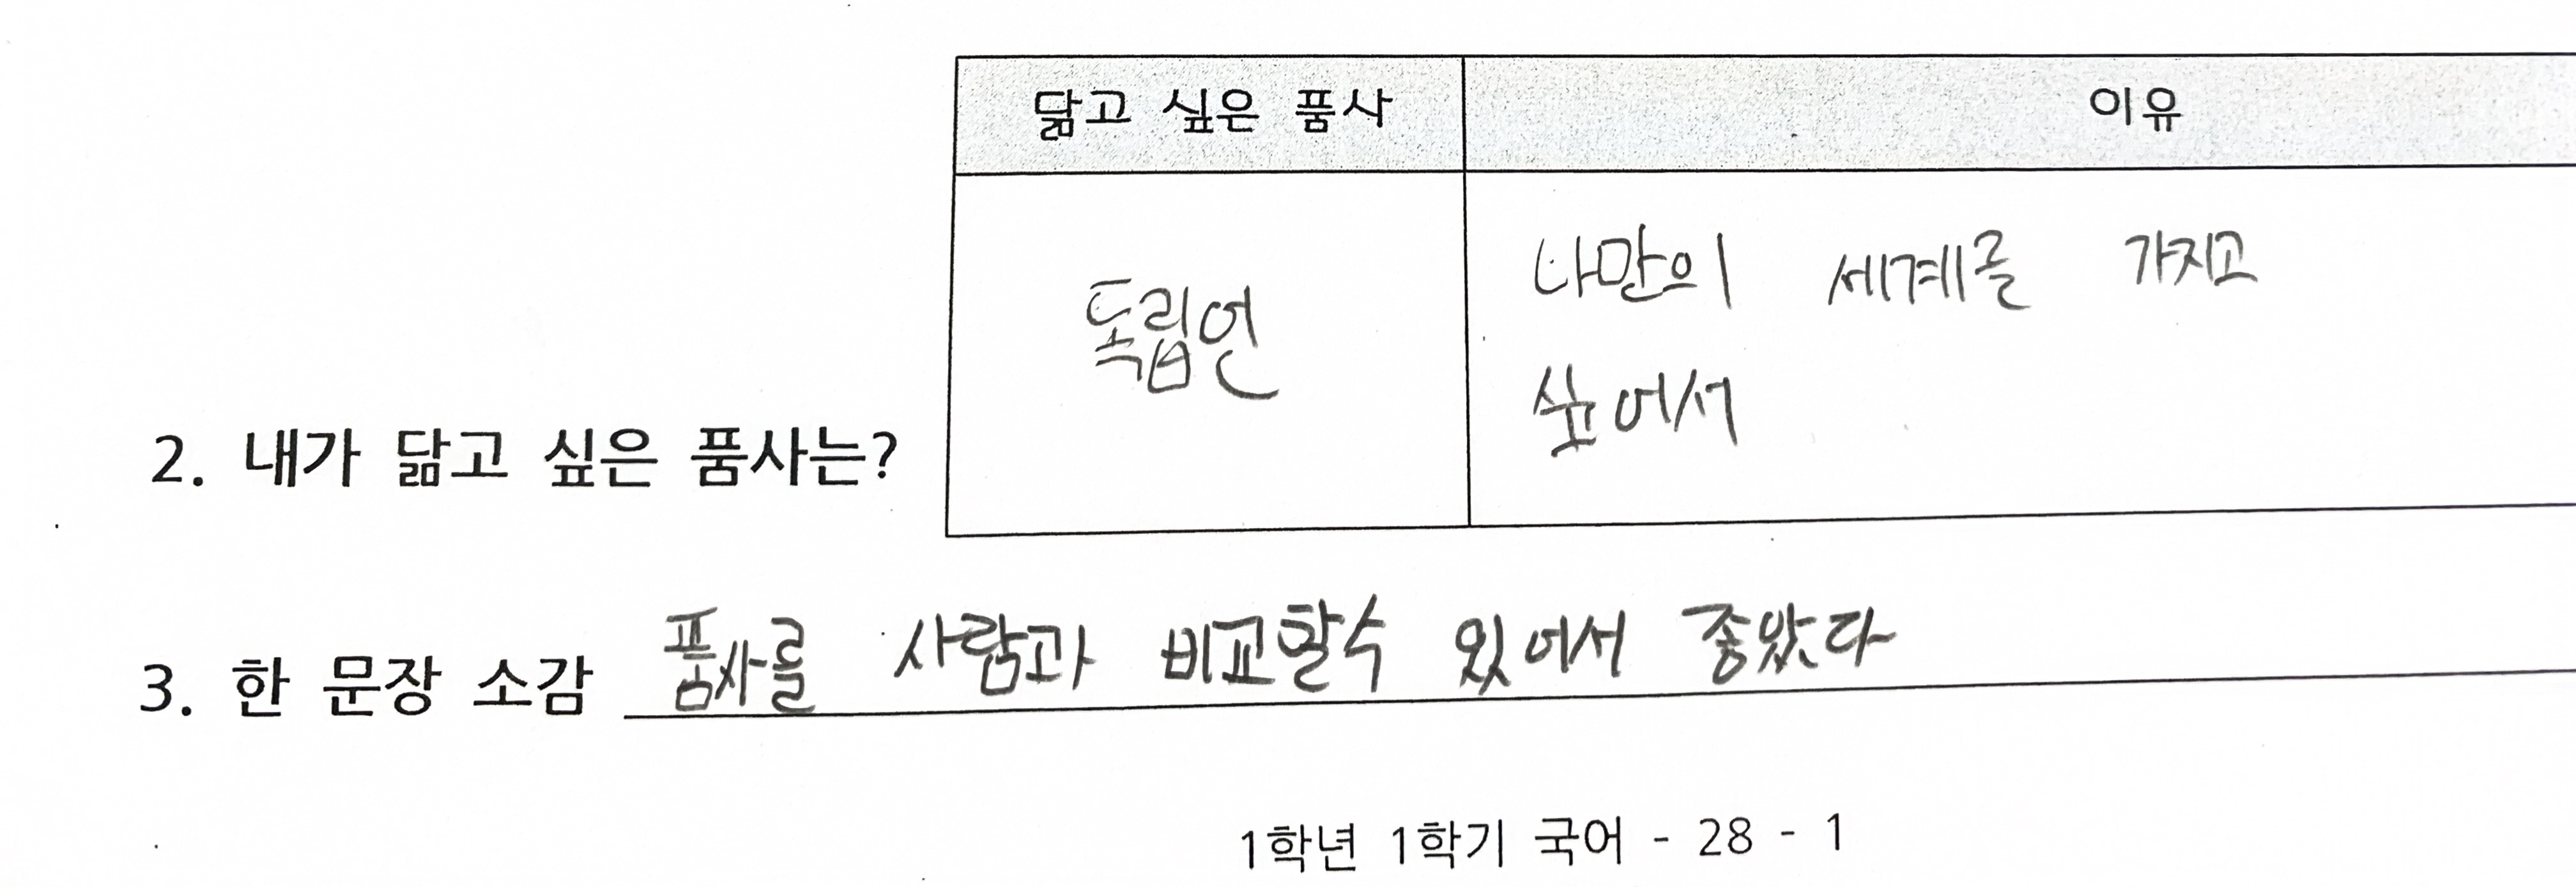 닮고 싶은 품사 이유
독립언 나만의 세계를 가지고
싶어서
2. 내가 닮고 싶은 품사는?
3. 한 문장 소감 품사를 사람과 비교할수 있어서 좋았다
1학년 1학기 국어 - 28 - 1